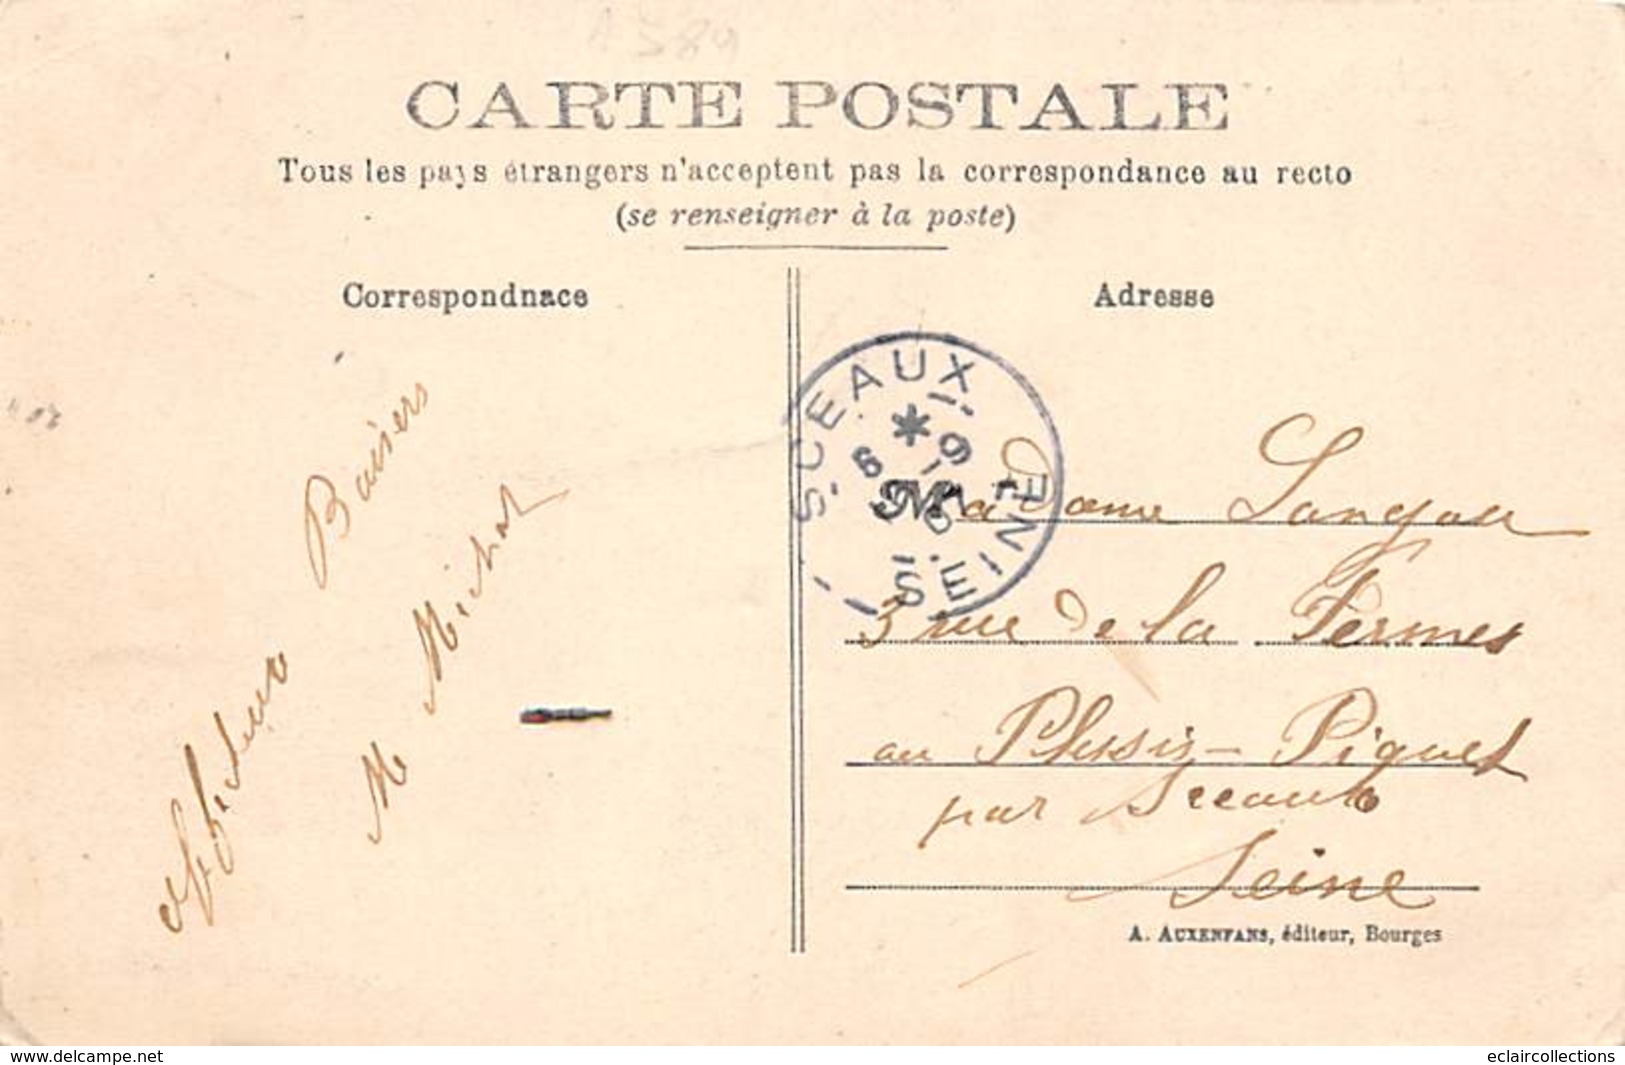 CARTE POSTALE
Tous les pays étrangers n'acceptent pas la correspondance au recto
(se renseigner à la poste)
Correspondnace
Adresse
Baisers
M Michat
SCEAUX
SEINE
Madame
3 rue de la Fermes
au Plessis-Piquet
par Sceaux
Seine
A. AUXENFANS, éditeur, Bourges
www.delcampe.net
eclaircollections